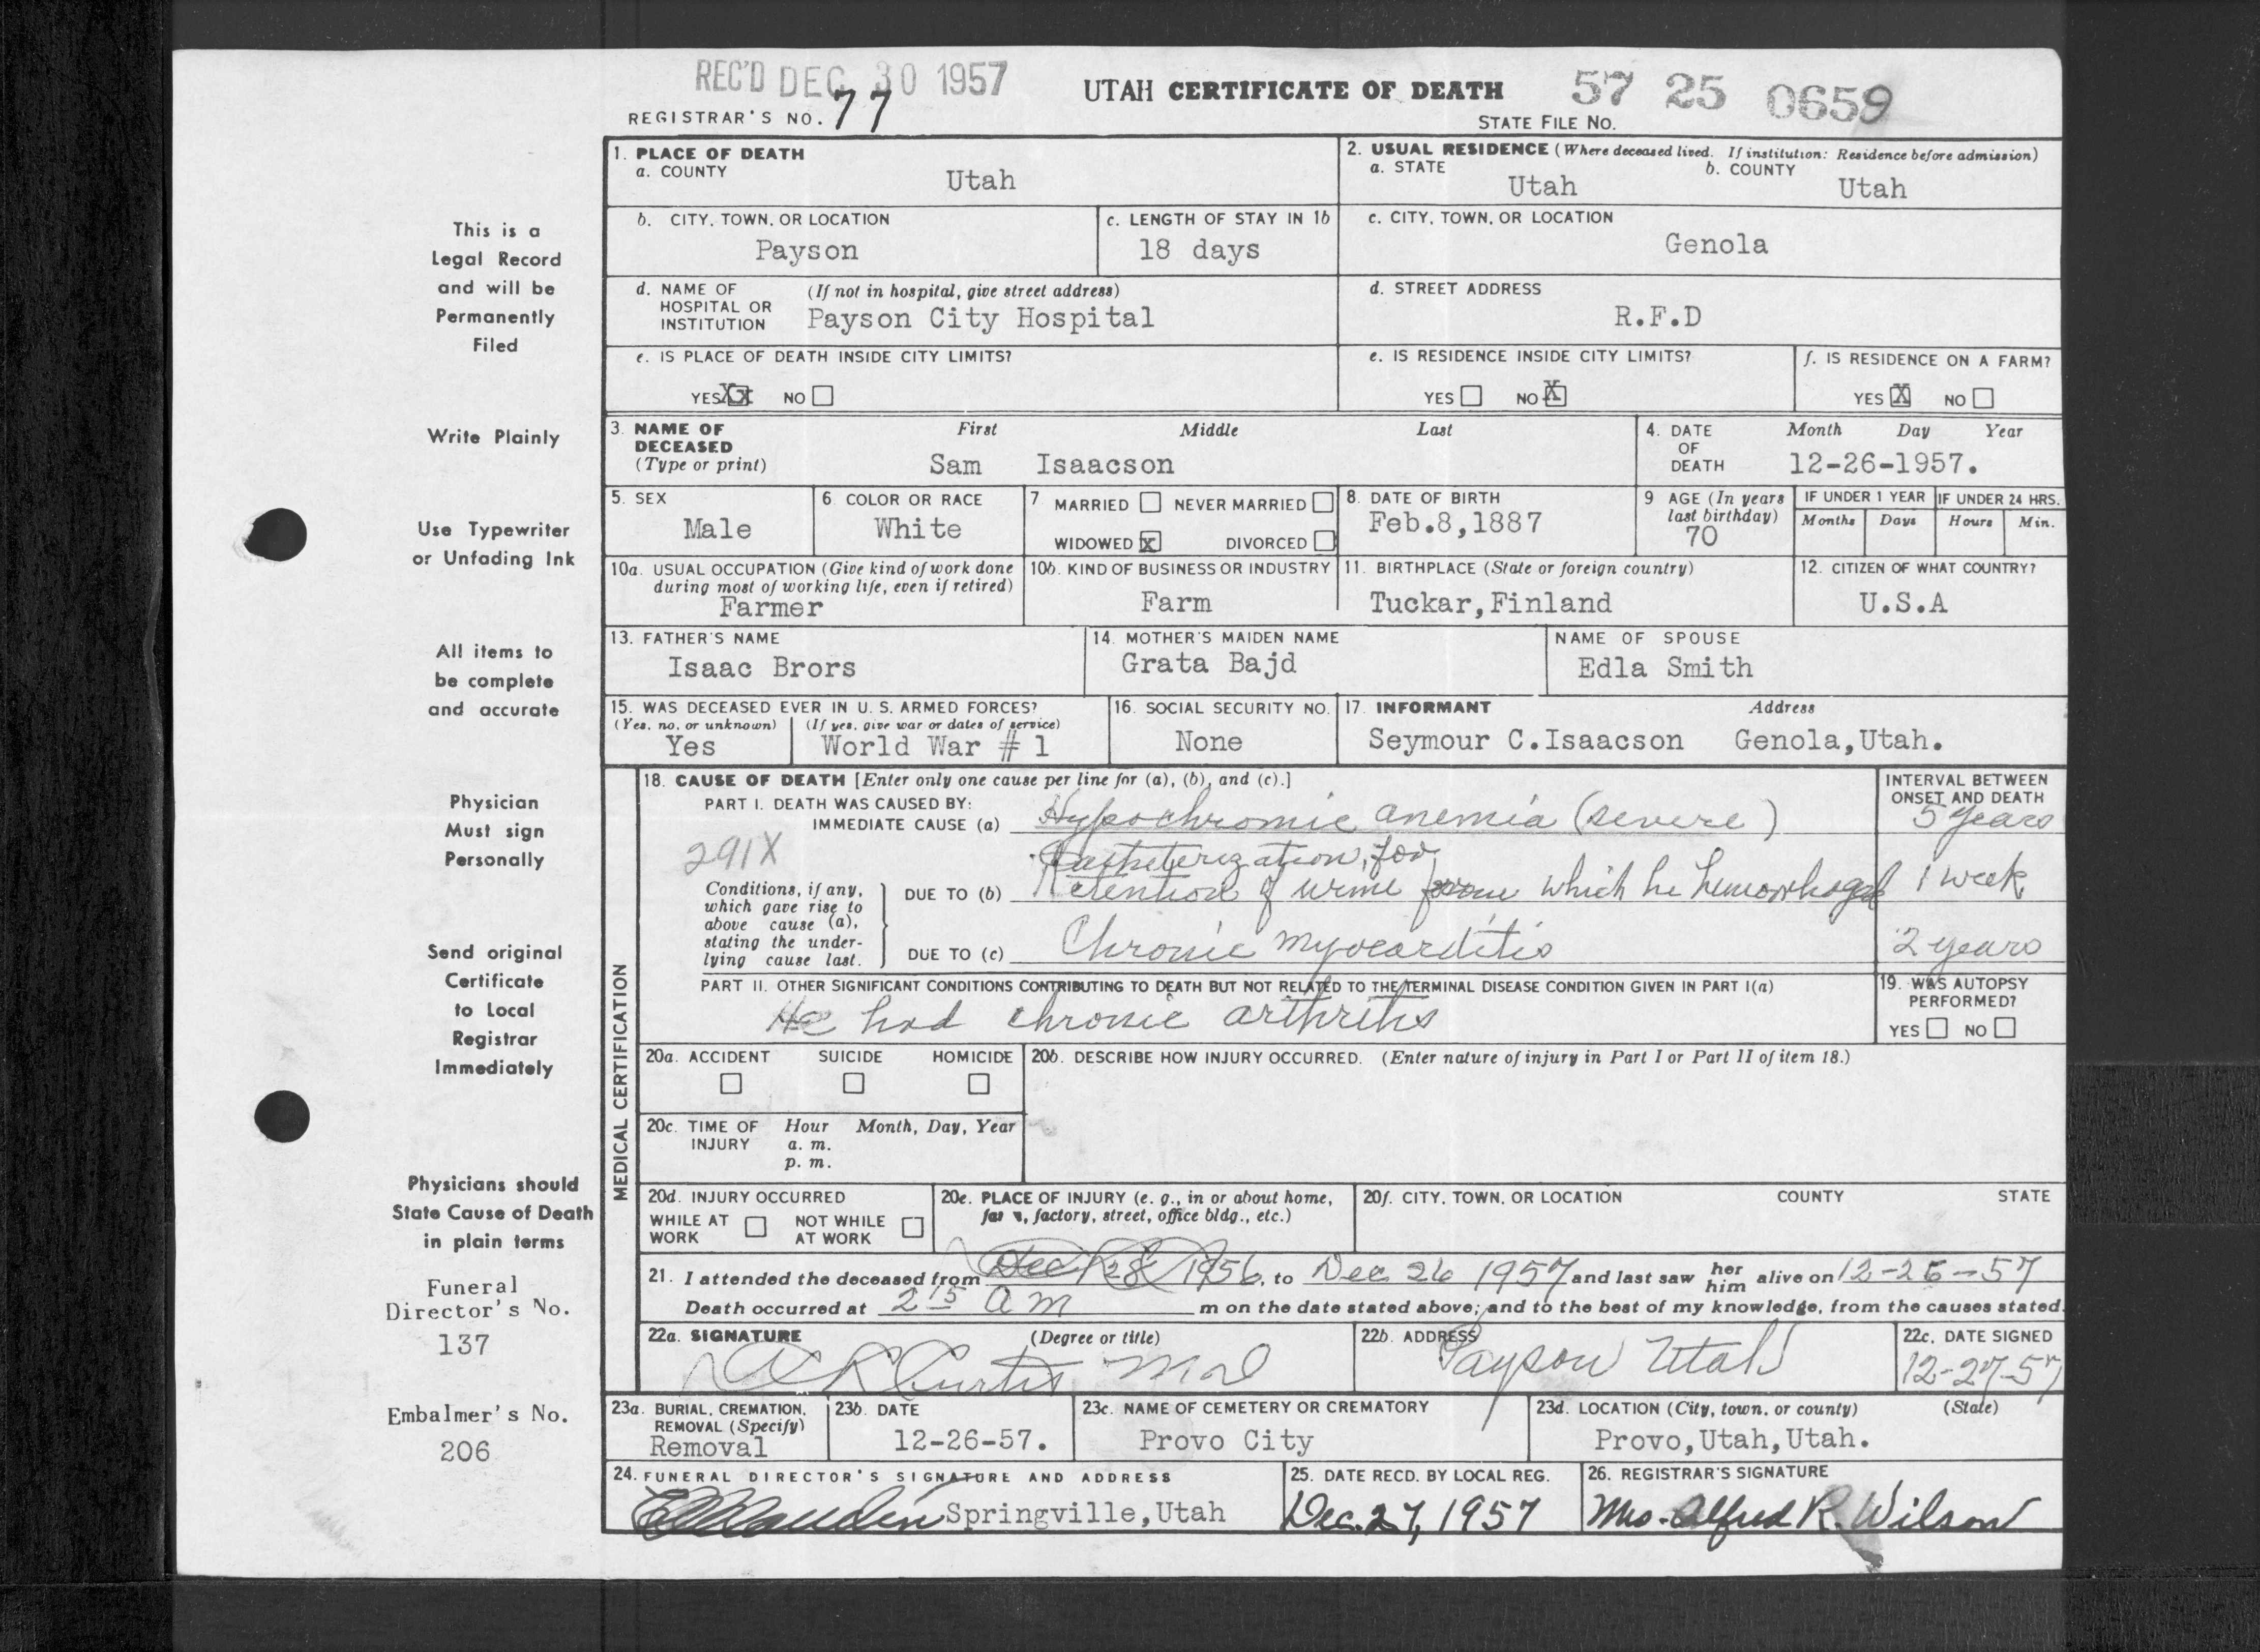 REC'D DEC 30 1957
UTAH CERTIFICATE OF DEATH
57 25 0659
REGISTRAR'S NO. 77
STATE FILE NO.
1. PLACE OF DEATH
a. COUNTY
Utah
2. USUAL RESIDENCE (Where deceased lived. If institution: Residence before admission)
a. STATE
Utah
b. COUNTY
Utah
b. CITY, TOWN, OR LOCATION
Payson
c. LENGTH OF STAY IN 1b
18 days
c. CITY, TOWN, OR LOCATION
Genola
d. NAME OF HOSPITAL OR INSTITUTION
(If not in hospital, give street address)
Payson City Hospital
d. STREET ADDRESS
R.F.D
e. IS PLACE OF DEATH INSIDE CITY LIMITS?
YES X NO
e. IS RESIDENCE INSIDE CITY LIMITS?
YES NO X
f. IS RESIDENCE ON A FARM?
YES X NO
3. NAME OF DECEASED
(Type or print)
First Middle Last
Sam Isaacson
4. DATE OF DEATH
Month Day Year
12-26-1957.
5. SEX
Male
6. COLOR OR RACE
White
7 MARRIED NEVER MARRIED
WIDOWED X DIVORCED
8. DATE OF BIRTH
Feb.8,1887
9 AGE (In years last birthday)
70
IF UNDER 1 YEAR
Months Days
IF UNDER 24 HRS.
Hours Min.
10a. USUAL OCCUPATION (Give kind of work done during most of working life, even if retired)
Farmer
10b. KIND OF BUSINESS OR INDUSTRY
Farm
11. BIRTHPLACE (State or foreign country)
Tuckar,Finland
12. CITIZEN OF WHAT COUNTRY?
U.S.A
13. FATHER'S NAME
Isaac Brors
14. MOTHER'S MAIDEN NAME
Grata Bajd
NAME OF SPOUSE
Edla Smith
15. WAS DECEASED EVER IN U. S. ARMED FORCES?
(Yes, no, or unknown) (If yes, give war or dates of service)
Yes World War # 1
16. SOCIAL SECURITY NO.
None
17. INFORMANT Address
Seymour C.Isaacson Genola,Utah.
MEDICAL CERTIFICATION
18. CAUSE OF DEATH [Enter only one cause per line for (a), (b), and (c).]
INTERVAL BETWEEN ONSET AND DEATH
PART I. DEATH WAS CAUSED BY:
IMMEDIATE CAUSE (a) Hypochromic anemia (severe) 5 years
291X
Conditions, if any, which gave rise to above cause (a), stating the underlying cause last.
Catheterization, for
DUE TO (b) Retention of urine from which he hemorrhaged 1 week
DUE TO (c) Chronic myocarditis 2 years
PART II. OTHER SIGNIFICANT CONDITIONS CONTRIBUTING TO DEATH BUT NOT RELATED TO THE TERMINAL DISEASE CONDITION GIVEN IN PART I(a)
He had chronic arthritis
19. WAS AUTOPSY PERFORMED?
YES NO
20a. ACCIDENT SUICIDE HOMICIDE
20b. DESCRIBE HOW INJURY OCCURRED. (Enter nature of injury in Part I or Part II of item 18.)
20c. TIME OF INJURY
Hour Month, Day, Year
a. m.
p. m.
20d. INJURY OCCURRED
WHILE AT WORK NOT WHILE AT WORK
20e. PLACE OF INJURY (e. g., in or about home, farm, factory, street, office bldg., etc.)
20f. CITY, TOWN, OR LOCATION COUNTY STATE
21. I attended the deceased from Dec 28 1956, to Dec 26 1957 and last saw her him alive on 12-26-57
Death occurred at 2 15 am m on the date stated above; and to the best of my knowledge, from the causes stated.
22a. SIGNATURE (Degree or title)
Curtis MD
22b. ADDRESS
Payson Utah
22c. DATE SIGNED
12-27-57
23a. BURIAL, CREMATION, REMOVAL (Specify)
Removal
23b. DATE
12-26-57.
23c. NAME OF CEMETERY OR CREMATORY
Provo City
23d. LOCATION (City, town, or county) (State)
Provo,Utah,Utah.
24. FUNERAL DIRECTOR'S SIGNATURE AND ADDRESS
Springville,Utah
25. DATE RECD. BY LOCAL REG.
Dec. 27, 1957
26. REGISTRAR'S SIGNATURE
Mrs. Alfred R. Wilson
This is a
Legal Record
and will be
Permanently
Filed
Write Plainly
Use Typewriter
or Unfading Ink
All items to
be complete
and accurate
Physician
Must sign
Personally
Send original
Certificate
to Local
Registrar
Immediately
Physicians should
State Cause of Death
in plain terms
Funeral
Director's No.
137
Embalmer's No.
206